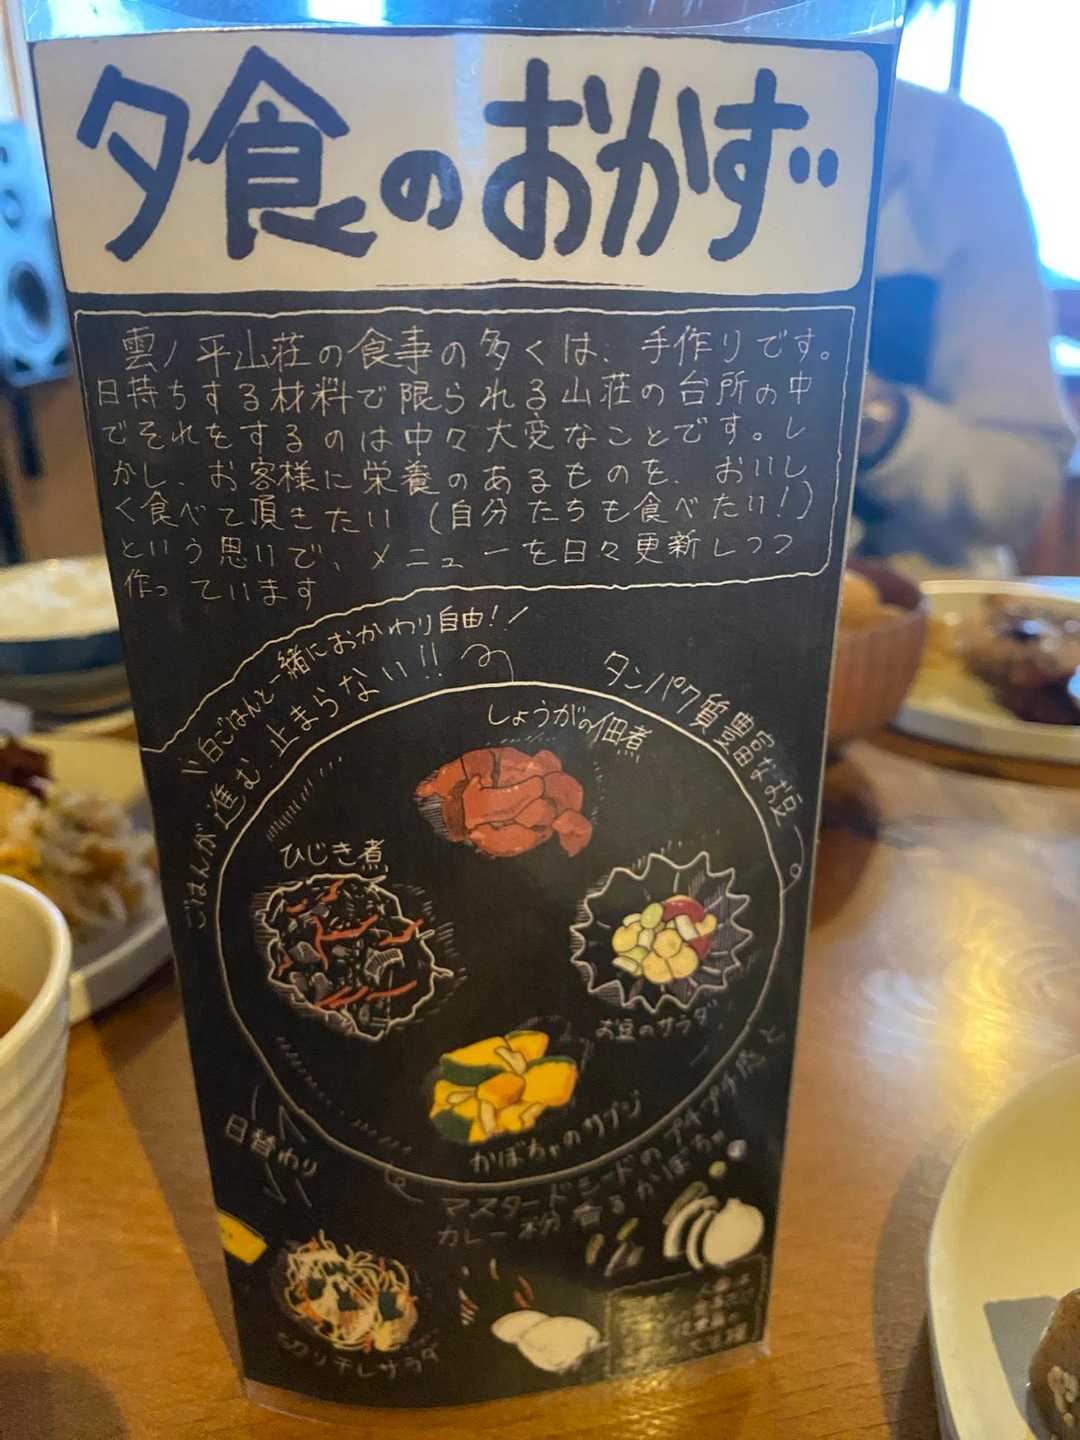 夕食のおかず
雲ノ平山荘の食事の多くは、手作りです。
日持ちする材料で限られる山荘の台所の中
でそれをするのは中々大変なことです。し
かし、お客様に栄養のあるものを、おいし
く食べて頂きたい(自分たちも食べたい!)
という思いで、メニューを日々更新しつつ
作っています
白ごはんと一緒におかわり自由!!
ごはんが進む、止まらない!!
タンパク質豊富なお豆
しょうがの佃煮
ひじき煮
お豆のサラダ
かぼちゃのサブジ
日替わり
マスタードシードのプチプチ感と
カレー粉香るかぼちゃ
切り干しサラダ